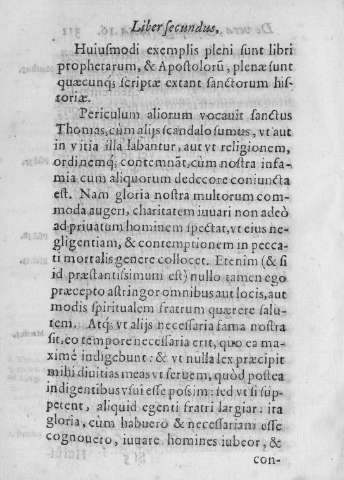 Liber secundus,
Huiusmodi exemplis pleni sunt libri
prophetarum, & Apostolorũ, plenæ sunt
quæcunq; scriptæ extant sanctorum his-
toriæ.
Periculum aliorum vocauit sanctus
Thomas, cùm alijs scandalo sumus, vt aut
in vitia illa labantur, aut vt religionem,
ordinemq; contemnãt, cùm nostra infa-
mia cum aliquorum dedecore coniuncta
est. Nam gloria nostra multorum com-
moda augeri, charitatem iuuari non adeò
ad priuatum hominem spectat, vt eius ne-
gligentiam, & contemptionem in pecca-
ti mortalis genere collocet. Etenim (& si
id præstantissimum est) nullo tamen ego
præcepto astringor omnibus aut locis, aut
modis spiritualem fratrum quærere salu-
tem. Atq; vt alijs necessaria fama nostra
sit, eo tempore necessaria erit, quo ea ma-
ximé indigebunt: & vt nulla lex præcipit
mihi diuitias meas vt seruem, quòd postea
indigentibus vsui esse possim: sed vt si sup-
petent, aliquid egenti fratri largiar: ita
gloria, cum habuero & necessariam esse
cognouero, iuuare homines iubeor, &
con-